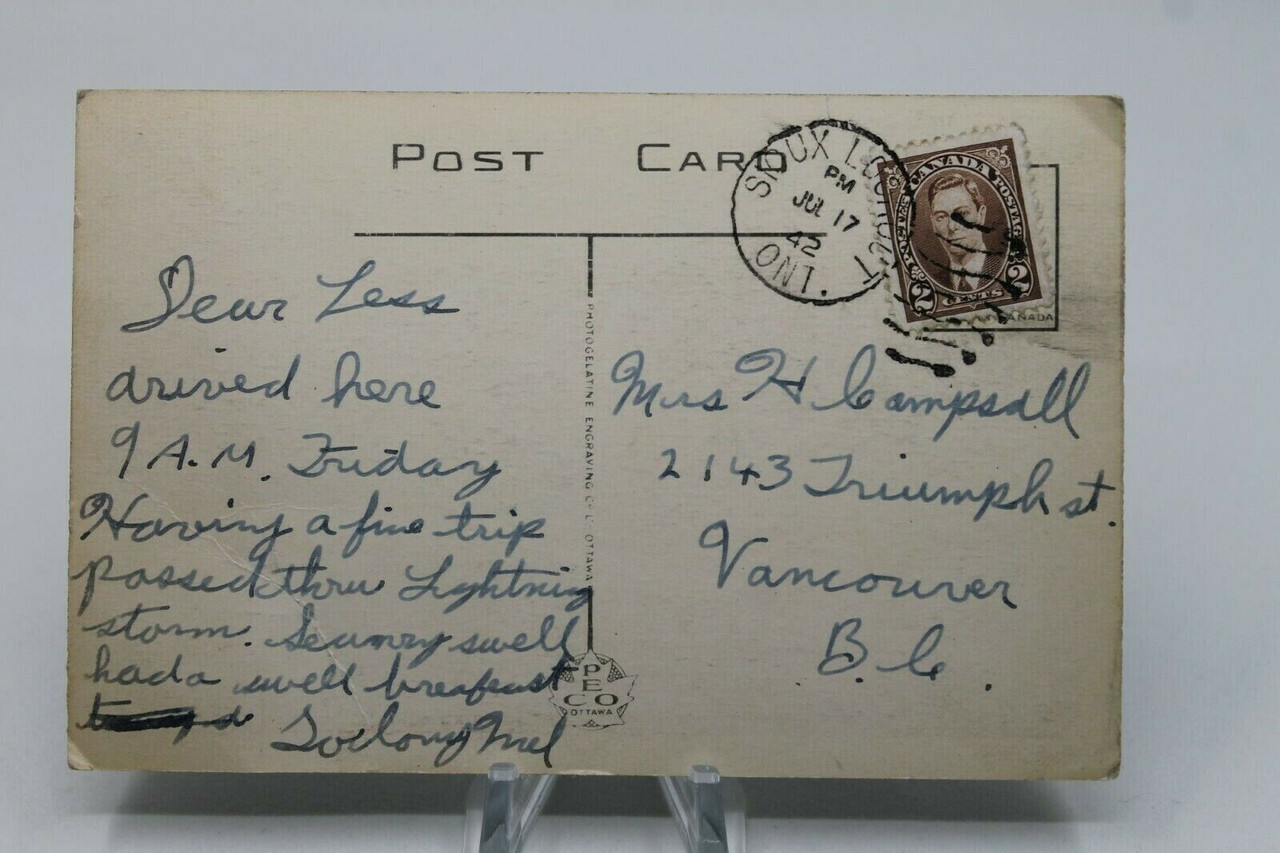 POST CARD
SIOUX LOOKOUT
PM
JUL 17
42
ONT.
CANADA POSTAGE
POSTES
2 CENTS 2
CANADA
Dear Less
arived here
9 A.M. Friday
Having a fine trip
passed thru Lightning
storm. Scunry swell
had a swell breafast
So long Mel
PHOTOGELATINE ENGRAVING CO. L. OTTAWA
PECO
OTTAWA
Mrs H Campsall
2143 Triumph st.
Vancouver
B.C.